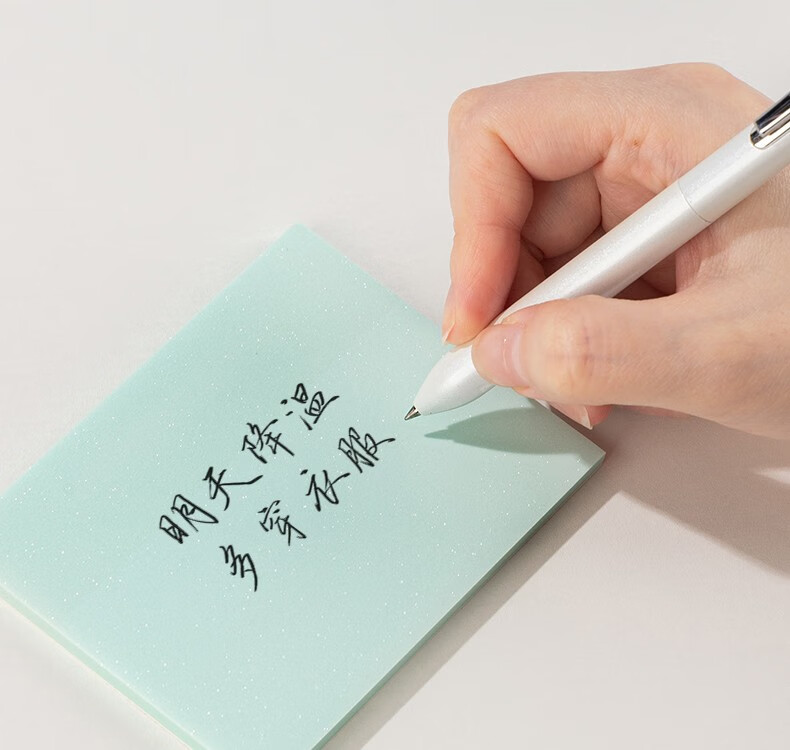 明天降温
多穿衣服